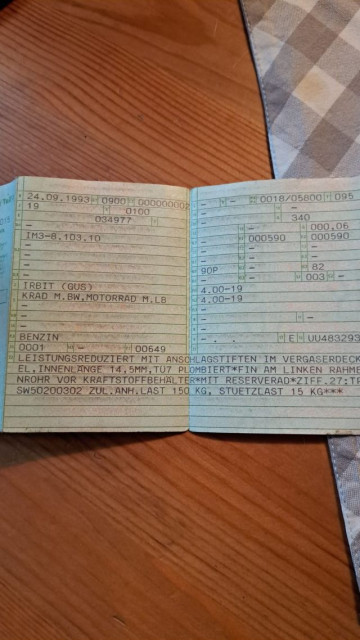 24.09.1993 0900 000000002
19 0100
034977
-
IM3-8.103.10
-
-
-
IRBIT (GUS)
KRAD M.BW,MOTORRAD M.LB
-
-
BENZIN
0001 - 00649
- - 0018/05800 095
- -
- 340
- 000,06
- 000590 000590
-
- -
90P 82
- 003 -
-
4.00-19
4.00-19
-
- -
-
- . . E UU483293
LEISTUNGSREDUZIERT MIT ANSCHLAGSTIFTEN IM VERGASERDECK
EL,INNENLÄNGE 14,5MM,TÜ7 PLOMBIERT*FIN AM LINKEN RAHME
NROHR VOR KRAFTSTOFFBEHÄLTER*MIT RESERVERAD*ZIFF.27:T
SW50200302 ZUL.ANH.LAST 150 KG, STUETZLAST 15 KG***